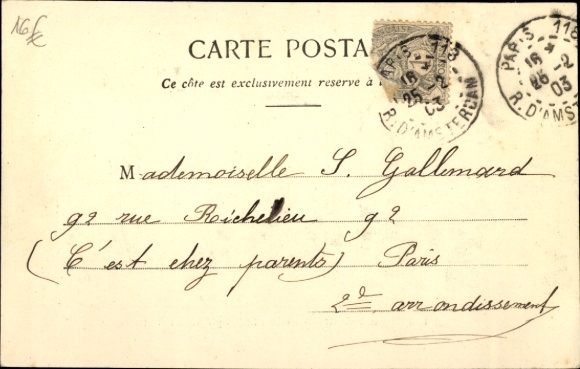 16 £
CARTE POSTA
Ce côte est exclusivement reserve à l
PARIS 118
16 *
25 -2
03
R. D'AMSTERDAM
PARIS 118
16 *
25 -2
03
R. D'AMS
Mademoiselle S. Gallemard
92 rue Richelieu 92
(C'est chez parents) Paris
2d arrondissement